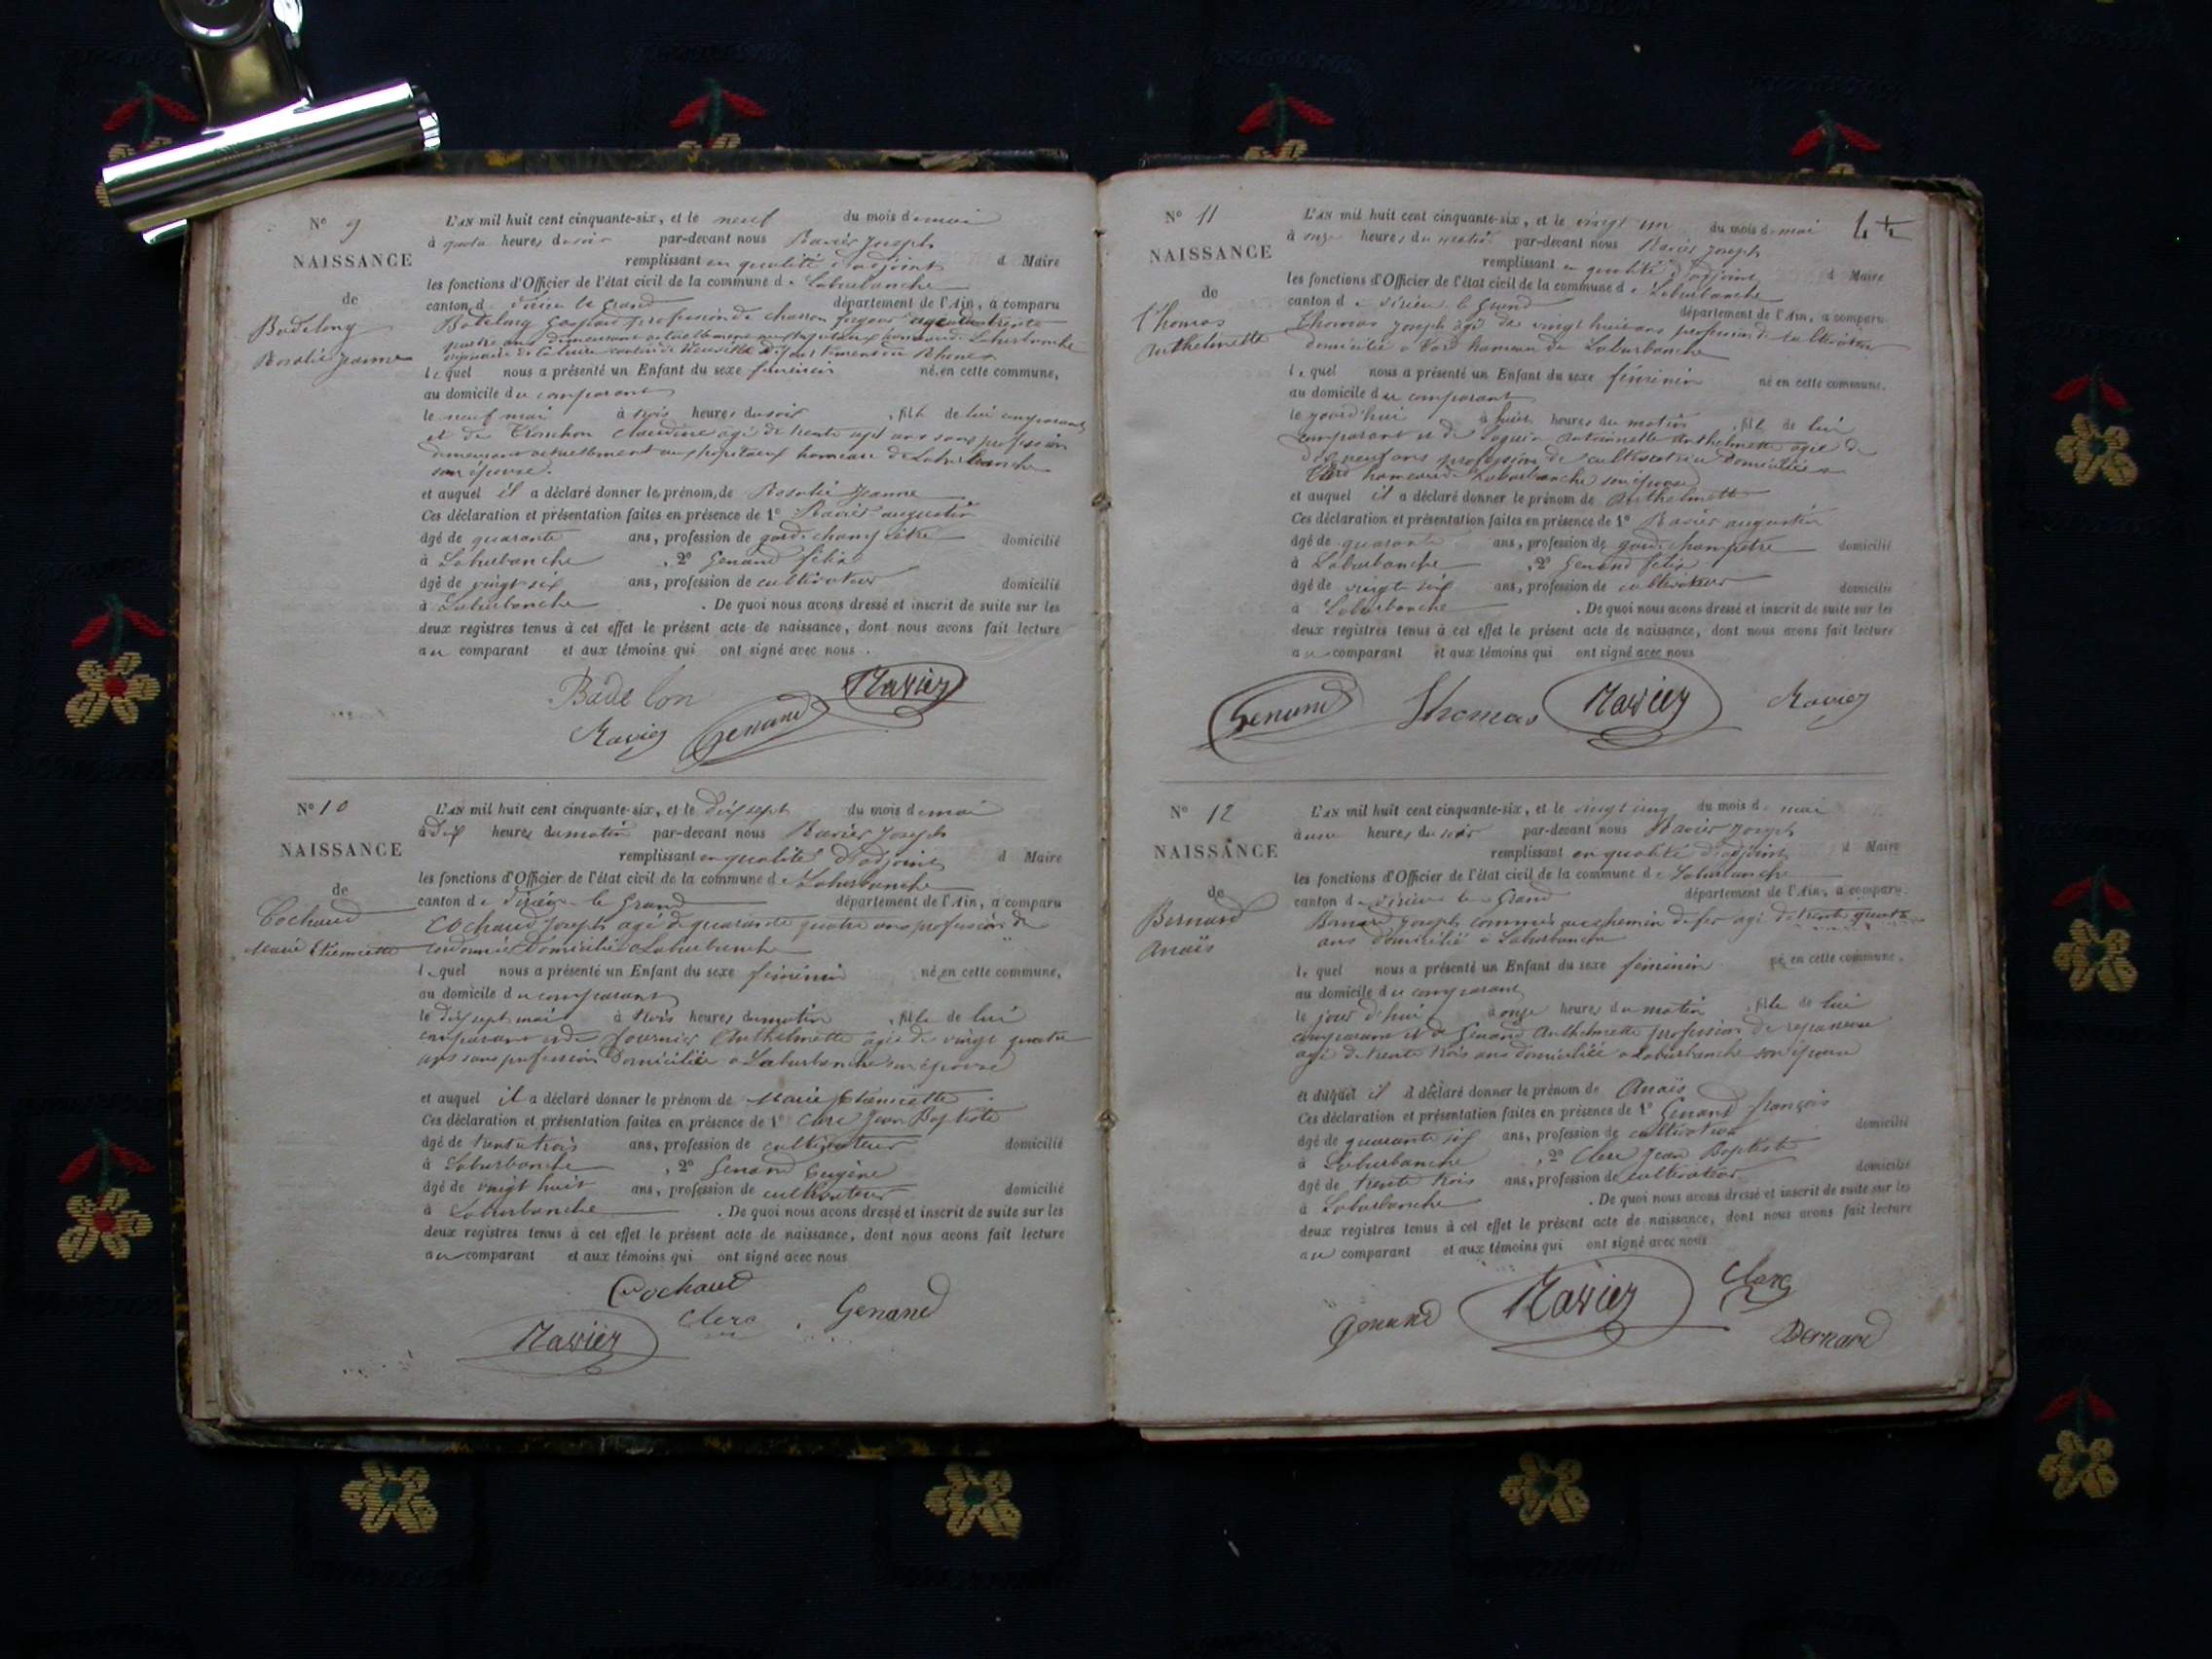 N° 9
NAISSANCE
de
Badelong
Rosalie Jeanne
L'AN mil huit cent cinquante-six, et le neuf du mois de mai
à quatre heures du soir par-devant nous Ravier Joseph
remplissant en qualité d'adjoint d Maire
les fonctions d'Officier de l'état civil de la commune de Laburbanche
canton de Virieu le Grand département de l'Ain, a comparu
Badelong Gaspard profession de charron forgeur agé de trente
quatre ans demeurant actuellement aux hopitaux hameau de Laburbanche
originaire de canton de Neuville département du Rhone
lequel nous a présenté un Enfant du sexe féminin né en cette commune,
au domicile du comparant
le neuf mai à trois heures du soir, fille de lui comparant
et de Claudine agé de trente sept ans sans profession
demeurant actuellement aux hopitaux hameau de Laburbanche
son épouse.
et auquel il a déclaré donner les prénoms de Rosalie Jeanne
Ces déclaration et présentation faites en présence de 1° Ravier augustin
âgé de quarante ans, profession de garde champêtre domicilié
à Laburbanche, 2° Genand félix
âgé de vingt six ans, profession de cultivateur domicilié
à Laburbanche. De quoi nous avons dressé et inscrit de suite sur les
deux registres tenus à cet effet le présent acte de naissance, dont nous avons fait lecture
au comparant et aux témoins qui ont signé avec nous.
Badelon Ravier
Ravier Genand
N° 10
NAISSANCE
de
Cochaud
Marie Etiennette
L'AN mil huit cent cinquante-six, et le dix sept du mois de mai
à dix heures du matin par-devant nous Ravier Joseph
remplissant en qualité d'adjoint d Maire
les fonctions d'Officier de l'état civil de la commune de Laburbanche
canton de Virieu le Grand département de l'Ain, a comparu
Cochaud Joseph agé de quarante quatre ans profession de
cordonnier domicilié a Laburbanche
lequel nous a présenté un Enfant du sexe féminin né en cette commune,
au domicile du comparant
le dix sept mai à trois heures du matin, fille de lui
comparant et de fournier Anthelmette agée de vingt quatre
ans sans profession domiciliée a Laburbanche son épouse
et auquel il a déclaré donner le prénom de Marie Etiennette
Ces déclaration et présentation faites en présence de 1° Clerc Jean Baptiste
âgé de trente trois ans, profession de cultivateur domicilié
à Laburbanche, 2° Genand Eugène
âgé de vingt huit ans, profession de cultivateur domicilié
à Laburbanche. De quoi nous avons dressé et inscrit de suite sur les
deux registres tenus à cet effet le présent acte de naissance, dont nous avons fait lecture
au comparant et aux témoins qui ont signé avec nous
Cochaud
Ravier Clerc Genand
N° 11
NAISSANCE
de
Thomas
Anthelmette
L'AN mil huit cent cinquante-six, et le vingt un du mois de mai
à onze heures du matin par-devant nous Ravier Joseph
remplissant en qualité d'adjoint d Maire
les fonctions d'Officier de l'état civil de la commune de Laburbanche
canton de Virieu le Grand département de l'Ain, a comparu
Thomas Joseph agé de vingt huit ans profession de cultivateur
domicilié a hameau de Laburbanche
lequel nous a présenté un Enfant du sexe féminin né en cette commune.
au domicile du comparant
le jourd'hui à huit heures du matin, fille de lui
comparant et de Antoinette Anthelmette agée de
dix neuf ans profession de cultivatrice domiciliée a
hameau de Laburbanche son épouse
et auquel il a déclaré donner le prénom de Anthelmette
Ces déclaration et présentation faites en présence de 1° Ravier augustin
âgé de quarante ans, profession de garde champetre domicilié
à Laburbanche, 2° Genand félix
âgé de vingt six ans, profession de cultivateur domicilié
à Laburbanche. De quoi nous avons dressé et inscrit de suite sur les
deux registres tenus à cet effet le présent acte de naissance, dont nous avons fait lecture
au comparant et aux témoins qui ont signé avec nous
Genand Thomas Ravier Ravier
N° 12
NAISSANCE
de
Bernard
Anaïs
L'AN mil huit cent cinquante-six, et le vingt cinq du mois de mai
à une heures du soir par-devant nous Ravier Joseph
remplissant en qualité d'adjoint d Maire
les fonctions d'Officier de l'état civil de la commune de Laburbanche
canton de Virieu le Grand département de l'Ain, a comparu
Bernard Joseph commis au chemin de fer agé de trente quatre
ans domicilié à Laburbanche
lequel nous a présenté un Enfant du sexe féminin né en cette commune,
au domicile du comparant
le jour d'hui à onze heures du matin, fille de lui
comparant et de Genand Anthelmette profession de repasseuse
agé de trente trois ans domiciliée a Laburbanche son épouse
et auquel il a déclaré donner le prénom de Anaïs
Ces déclaration et présentation faites en présence de 1° Genand françois
âgé de quarante six ans, profession de cultivateur domicilié
à Laburbanche, 2° Clerc Jean Baptiste
âgé de trente trois ans, profession de cultivateur domicilié
à Laburbanche. De quoi nous avons dressé et inscrit de suite sur les
deux registres tenus à cet effet le présent acte de naissance, dont nous avons fait lecture
au comparant et aux témoins qui ont signé avec nous
Genand Ravier Clerc
Bernard